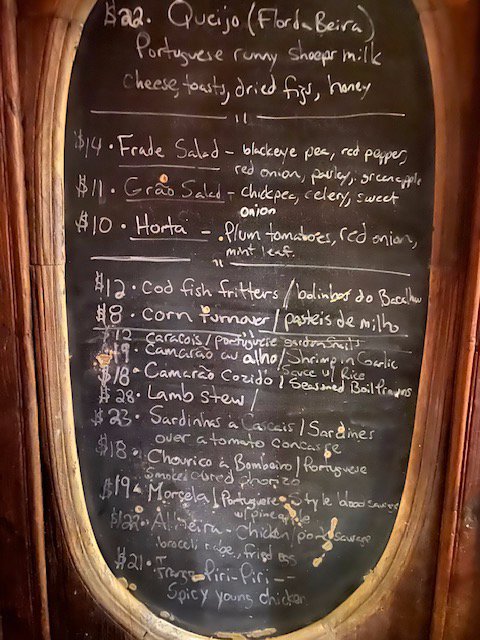 $22. Queijo (Flor da Beira)
Portuguese runny sheeps milk
cheese, toasts, dried figs, honey
$14 · Frade Salad - blackeye pea, red pepper,
red onion, parley, green apple
$11 · Grão Salad - chickpea, celery, sweet
onion
$10 · Horta - Plum tomatoes, red onion,
mint leaf.
$12 · cod fish fritters / bolinhos do Bacalhau
$8 · corn turnover / pasteis de milho
$12 caracois / portuguese garden snails
Camarão au alho / Shrimp in Garlic
Sauce w/ Rice
$18 · Camarão Cozido / Seasoned Boil Prawns
$28 · Lamb stew /
$23 · Sardinhas à Cascais / Sardines
over a tomato concasse
$18 · Chourico à Bombeiro / Portuguese
Smoked cured chorizo
$19 · Morcela / Portuguese Style blood sausage
w/ pineapple
$22 · Alheira - Chicken / pork sausage
brocoli rabe, fried egg
$21 · Piri-Piri --
Spicy young chicken